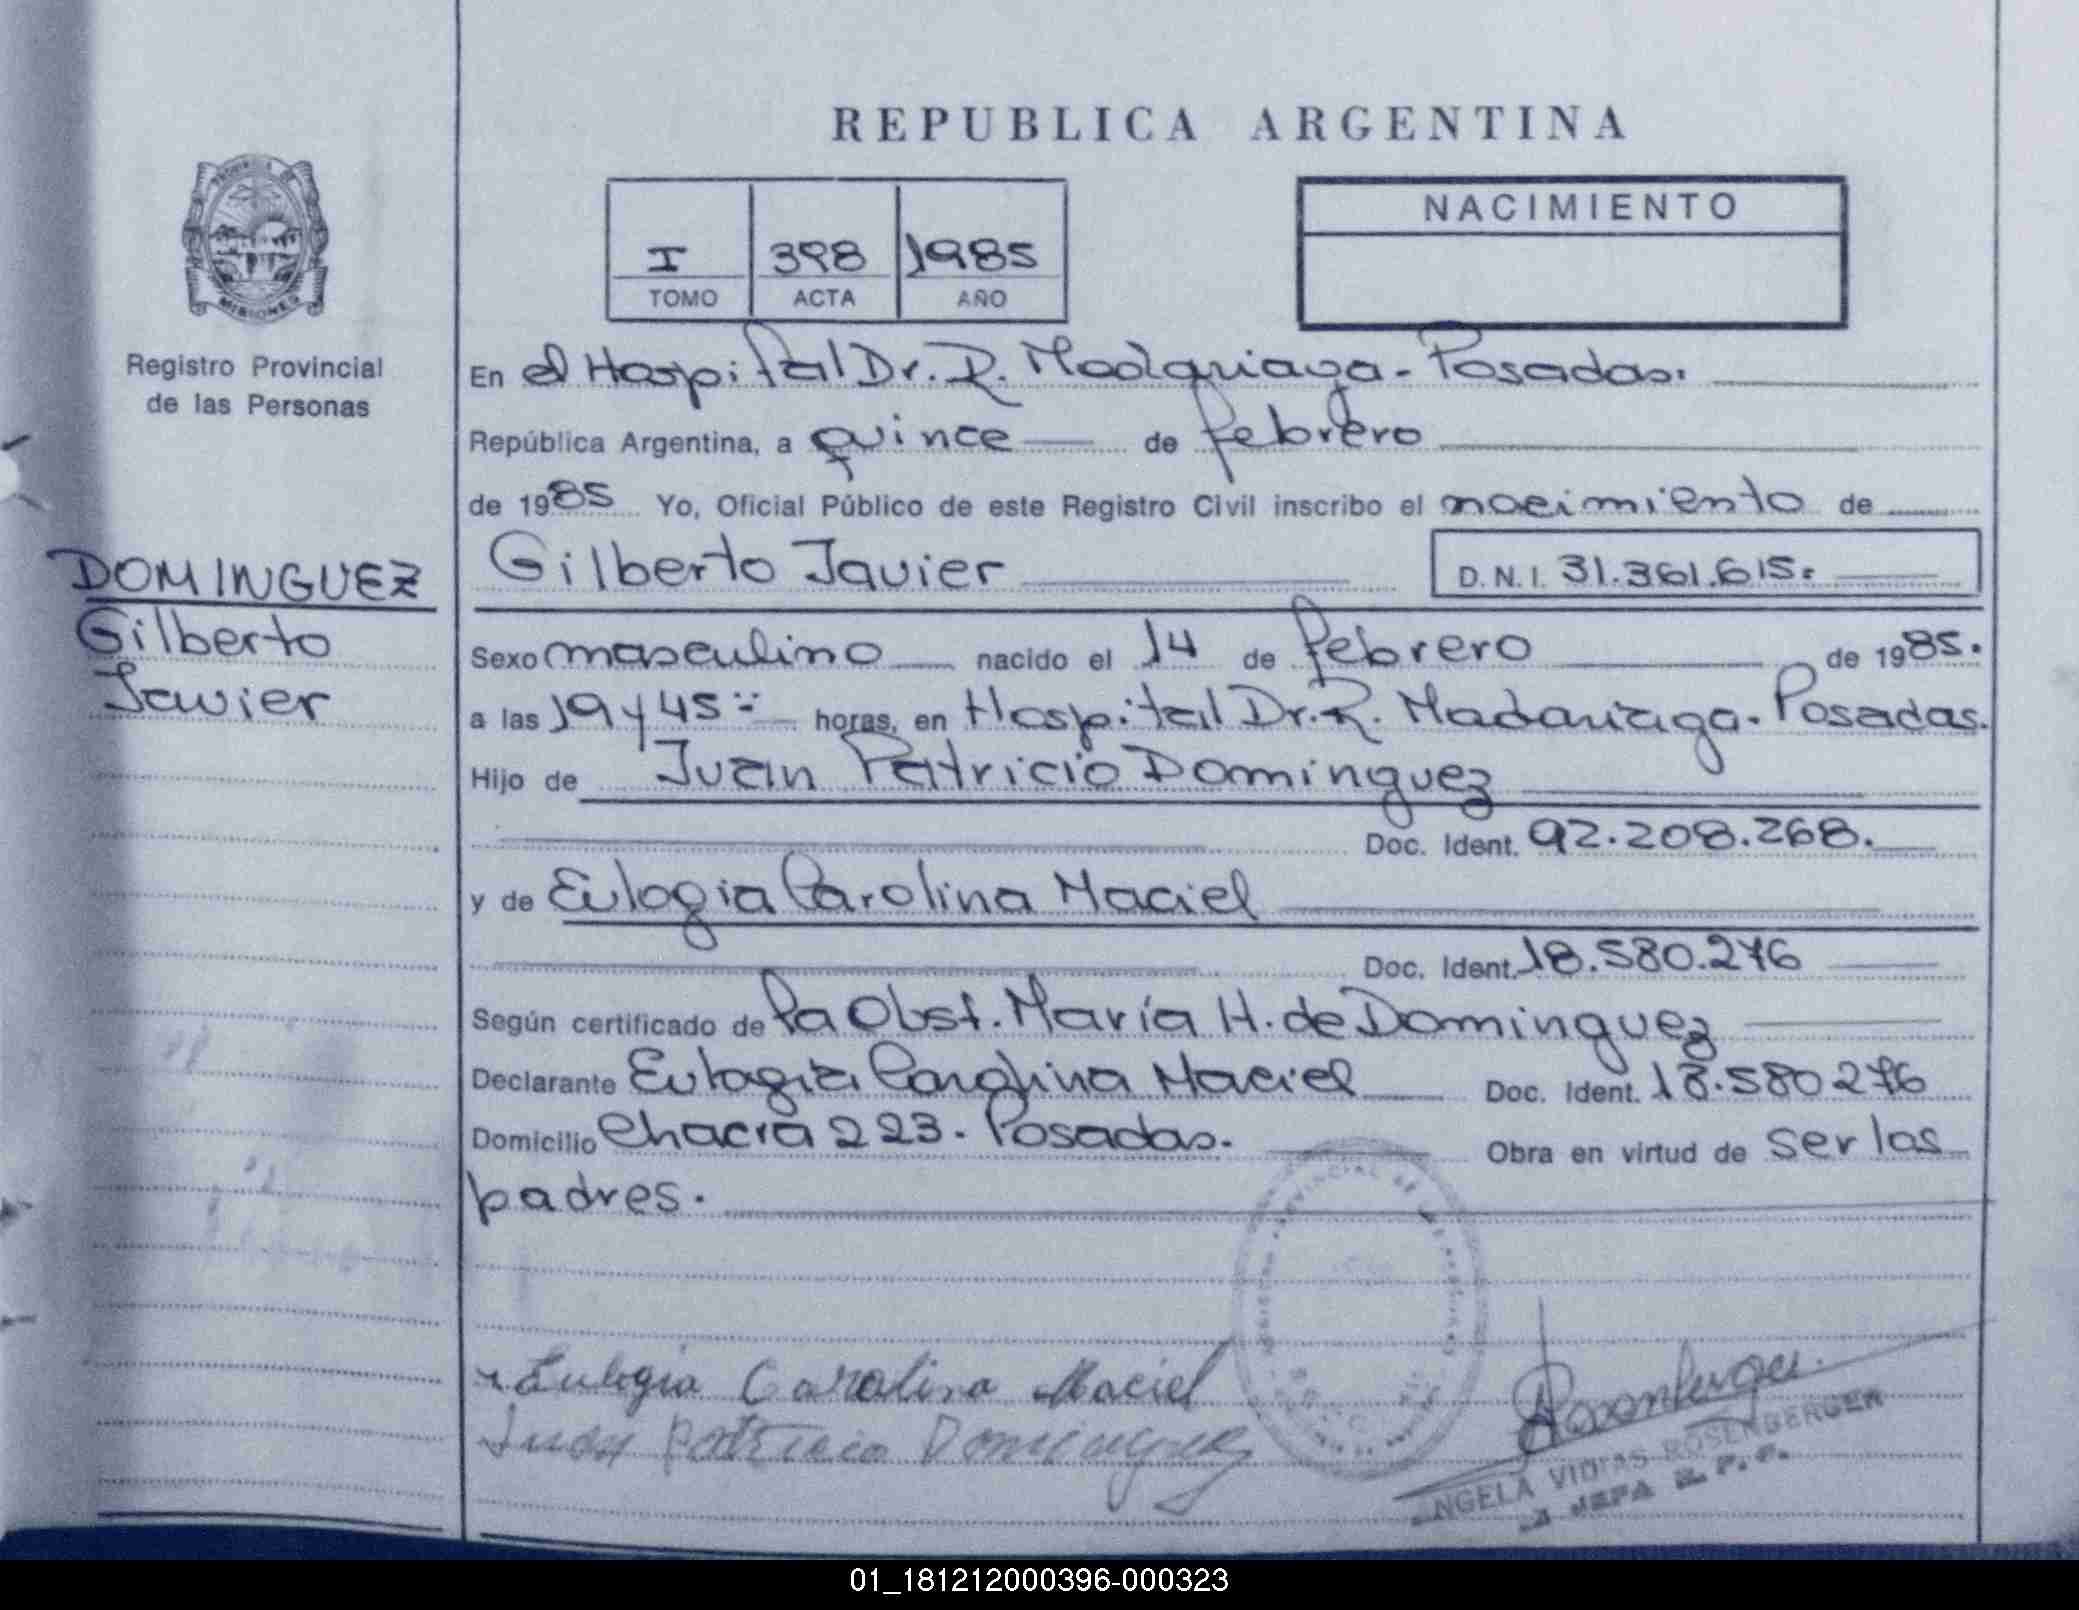 REPUBLICA ARGENTINA
PROVINCIA DE
MISIONES
Registro Provincial
de las Personas
I 398 1985
TOMO ACTA AÑO
NACIMIENTO
En el Hospital Dr. R. Madariaga - Posadas.
República Argentina, a quince de febrero
de 1985 Yo, Oficial Público de este Registro Civil inscribo el nacimiento de
Gilberto Javier D.N.I. 31.361.615.
DOMINGUEZ
Gilberto
Javier
Sexo masculino nacido el 14 de febrero de 1985.
a las 19 y 45 horas, en Hospital Dr. R. Madariaga. Posadas.
Hijo de Juan Patricio Dominguez
Doc. Ident. 92.208.268.
y de Eulogia Carolina Maciel
Doc. Ident. 18.580.276
Según certificado de la Obst. María H. de Dominguez
Declarante Eulogia Carolina Maciel Doc. Ident. 18.580276
Domicilio Chacra 223. Posadas. Obra en virtud de ser los
padres.
Eulogia Carolina Maciel
Juan Patricio Dominguez
Rosenberger
ROSENBERGER
JEFA R. P. P.
01_181212000396-000323